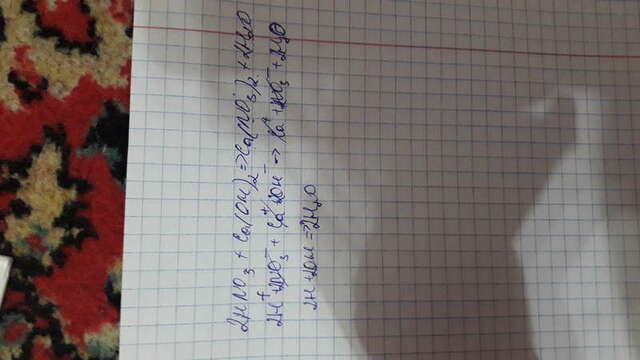 2HNO3 + Ca(OH)2 => Ca(NO3)2 + 2H2O
2H+ + 2NO3- + Ca+ + 2OH- => Ca+ + 2NO3- + 2H2O
2H + 2OH = 2H2O